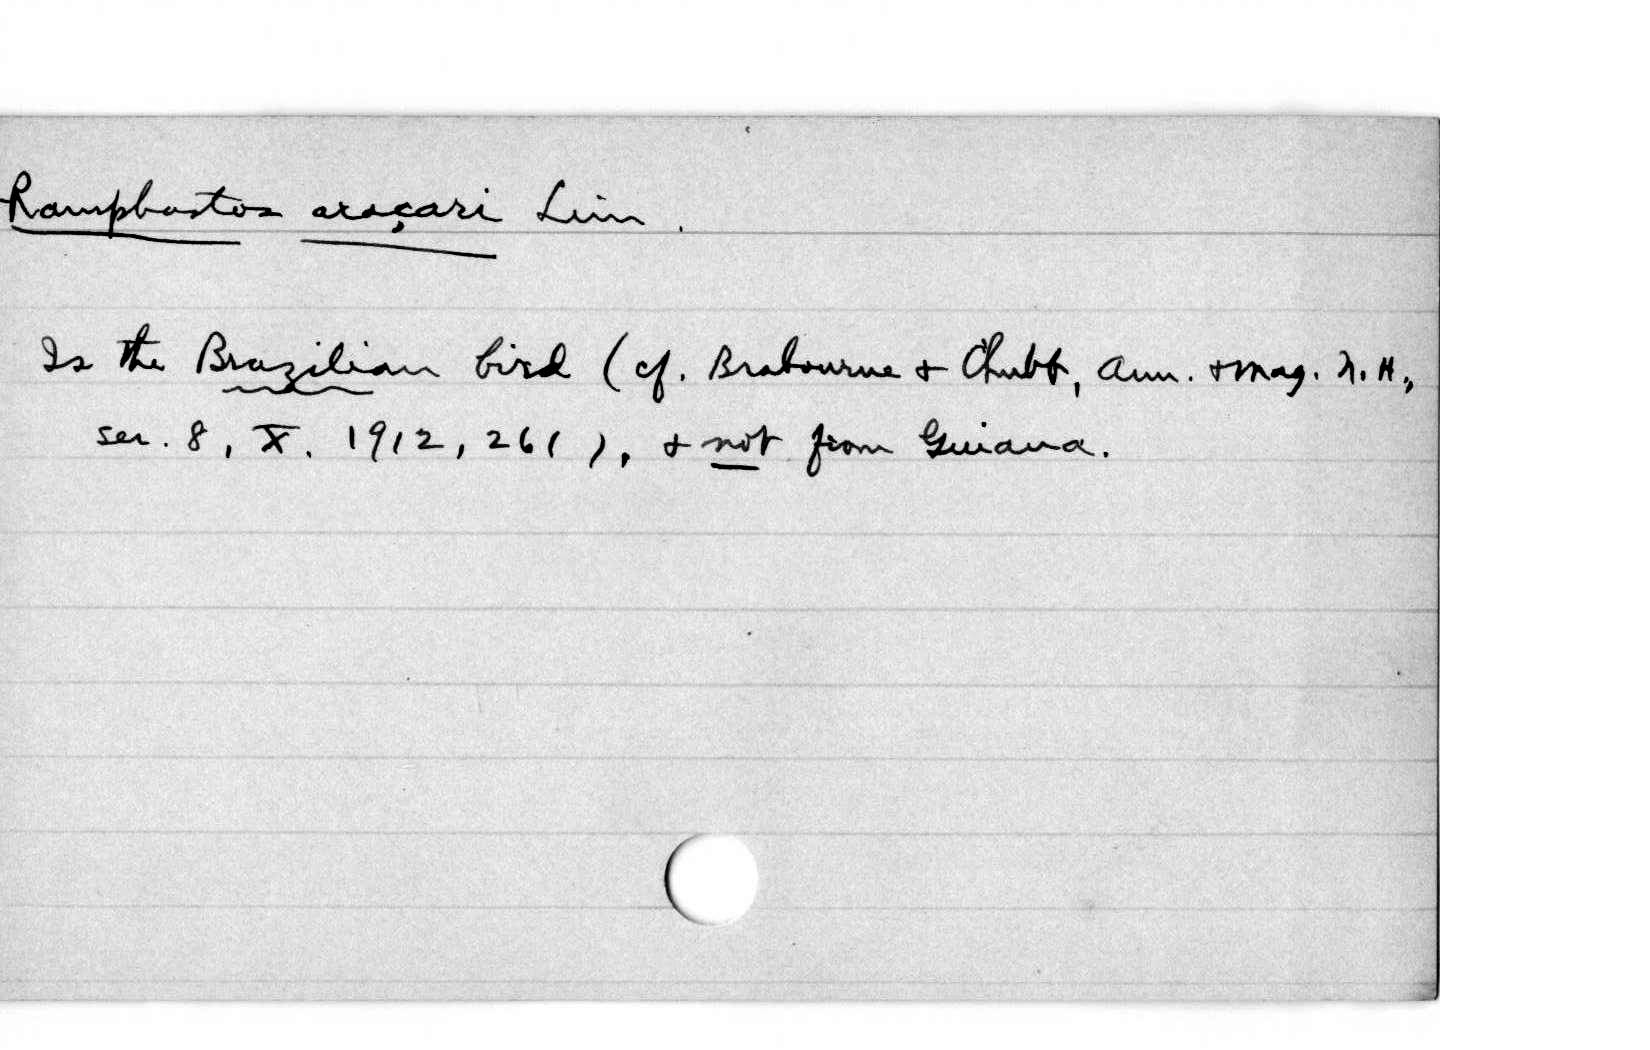 Ramphastos araçari Linn.
Is the Brazilian bird (cf. Brabourne & Chubb, Ann. & Mag. N. H.,
ser. 8, X. 1912, 261), & not from Guiana.